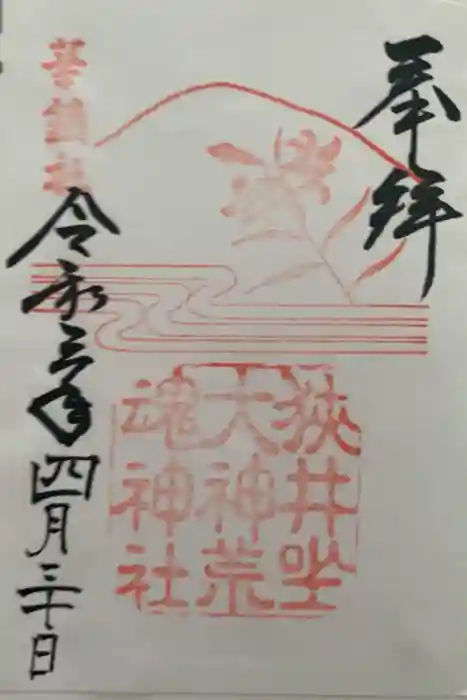 奉拝
狭井坐
大神荒
魂神社
華鎮社
令和三年四月三十日